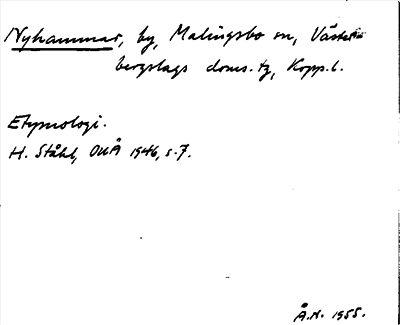 Nyhammar, by, Malingsbo sn, Väster-
bergslags doms.tg, Kopp.l.
Etymologi.
H. Ståhl, OUÅ 1946, s.7.
Å.N. 1955.